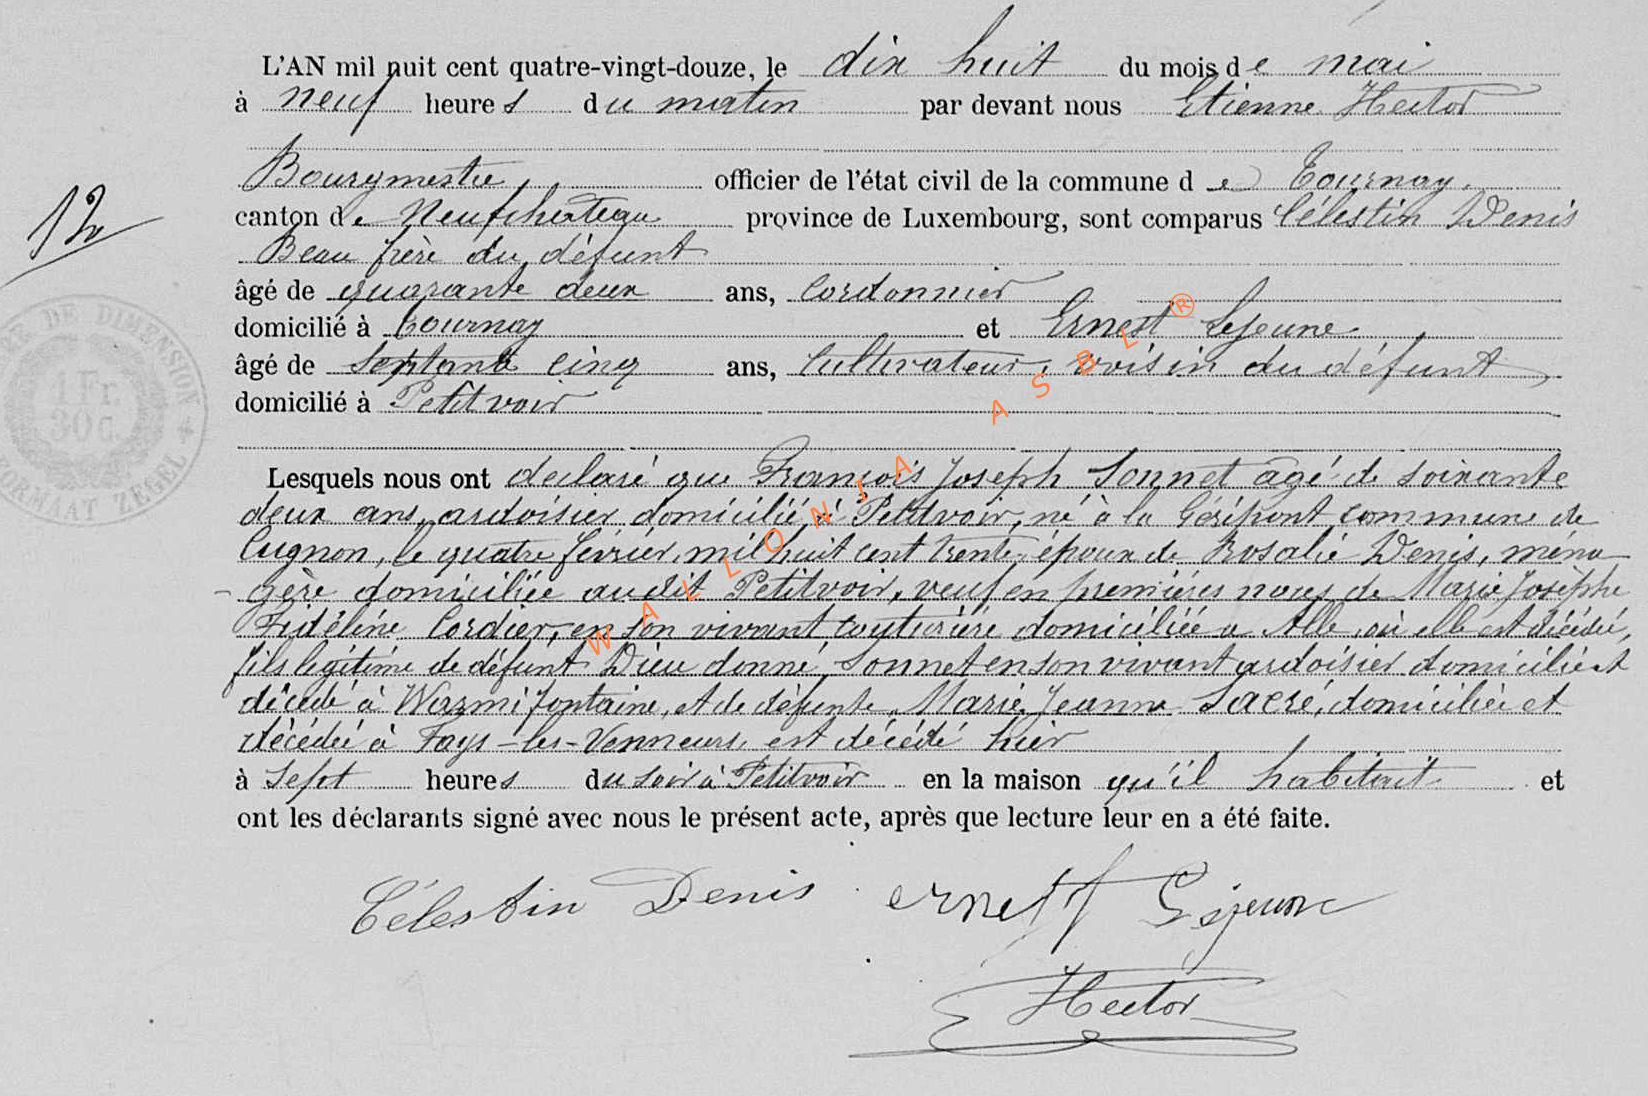 L'AN mil huit cent quatre-vingt-douze, le dix huit du mois de mai
à neuf heures du matin par devant nous Etienne Hector
Bourgmestre officier de l'état civil de la commune de Tournay.
canton de Neufchateau province de Luxembourg, sont comparus Célestin Denis
12
Beau frère du défunt
âgé de quarante deux ans, Cordonnier
domicilié à Tournay et Ernest Lejeune
âgé de septante cinq ans, Cultivateur, voisin du défunt
domicilié à Petitvoir
DE DIMENSION
1 Fr.
30 C.
FORMAAT ZEGEL
Lesquels nous ont declaré que François Joseph Sonnet agé de soixante
deux ans, ardoisier domicilié à Petitvoir, né à la Géripont commune de
Cugnon, le quatre février mil huit cent trente, époux de Rosalie Denis, ména
- gère domiciliée audit Petitvoir, veuf en premières noces de Marie Josèphe
Fidéline Cordier, en son vivant couturière domiciliée a Alle, où elle est décédée,
fils légitime de défunt Dieu donné Sonnet en son vivant ardoisier domicilié et
décédé à Warmifontaine, et de défunte Marie Jeanne Sacré, domiciliée et
décédée à Fays-les-Venneurs, est décédé hier
à sept heures du soir à Petitvoir en la maison qu'il habitait et
ont les déclarants signé avec nous le présent acte, après que lecture leur en a été faite.
Célestin Denis ernest Lejeune
Hector
WALLONIA ASBL ®